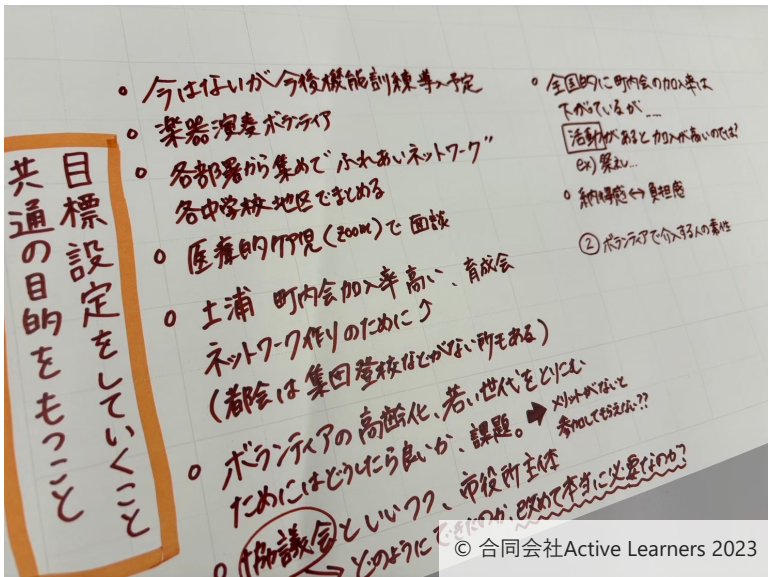 目標設定をしていくこと
共通の目的をもつこと
。今はないが今後機能訓練導入予定
。楽器演奏ボランティア
。各部署から集めて"ふれあいネットワーク"
各中学校地区でまとめる
。医療的ケア児(zoom)で面談
。土浦 町内会加入率高い、育成会
ネットワーク作りのために↑
(都会は集団登校などがない所もある)
。ボランティアの高齢化、若い世代をとりこむ
ためにはどうしたら良いか、課題。
➡メリットがないと
参加してもらえない??
。協議会といいつつ、市役所主体
→どのようにできたのか、改めて本当に必要なのか?
。全国的に町内会の加入率は
下がっているが....
活動があると加入が高いのでは?
ex)祭し...
。納得感↔負担感
②ボランティアで介入する人の素性
© 合同会社Active Learners 2023